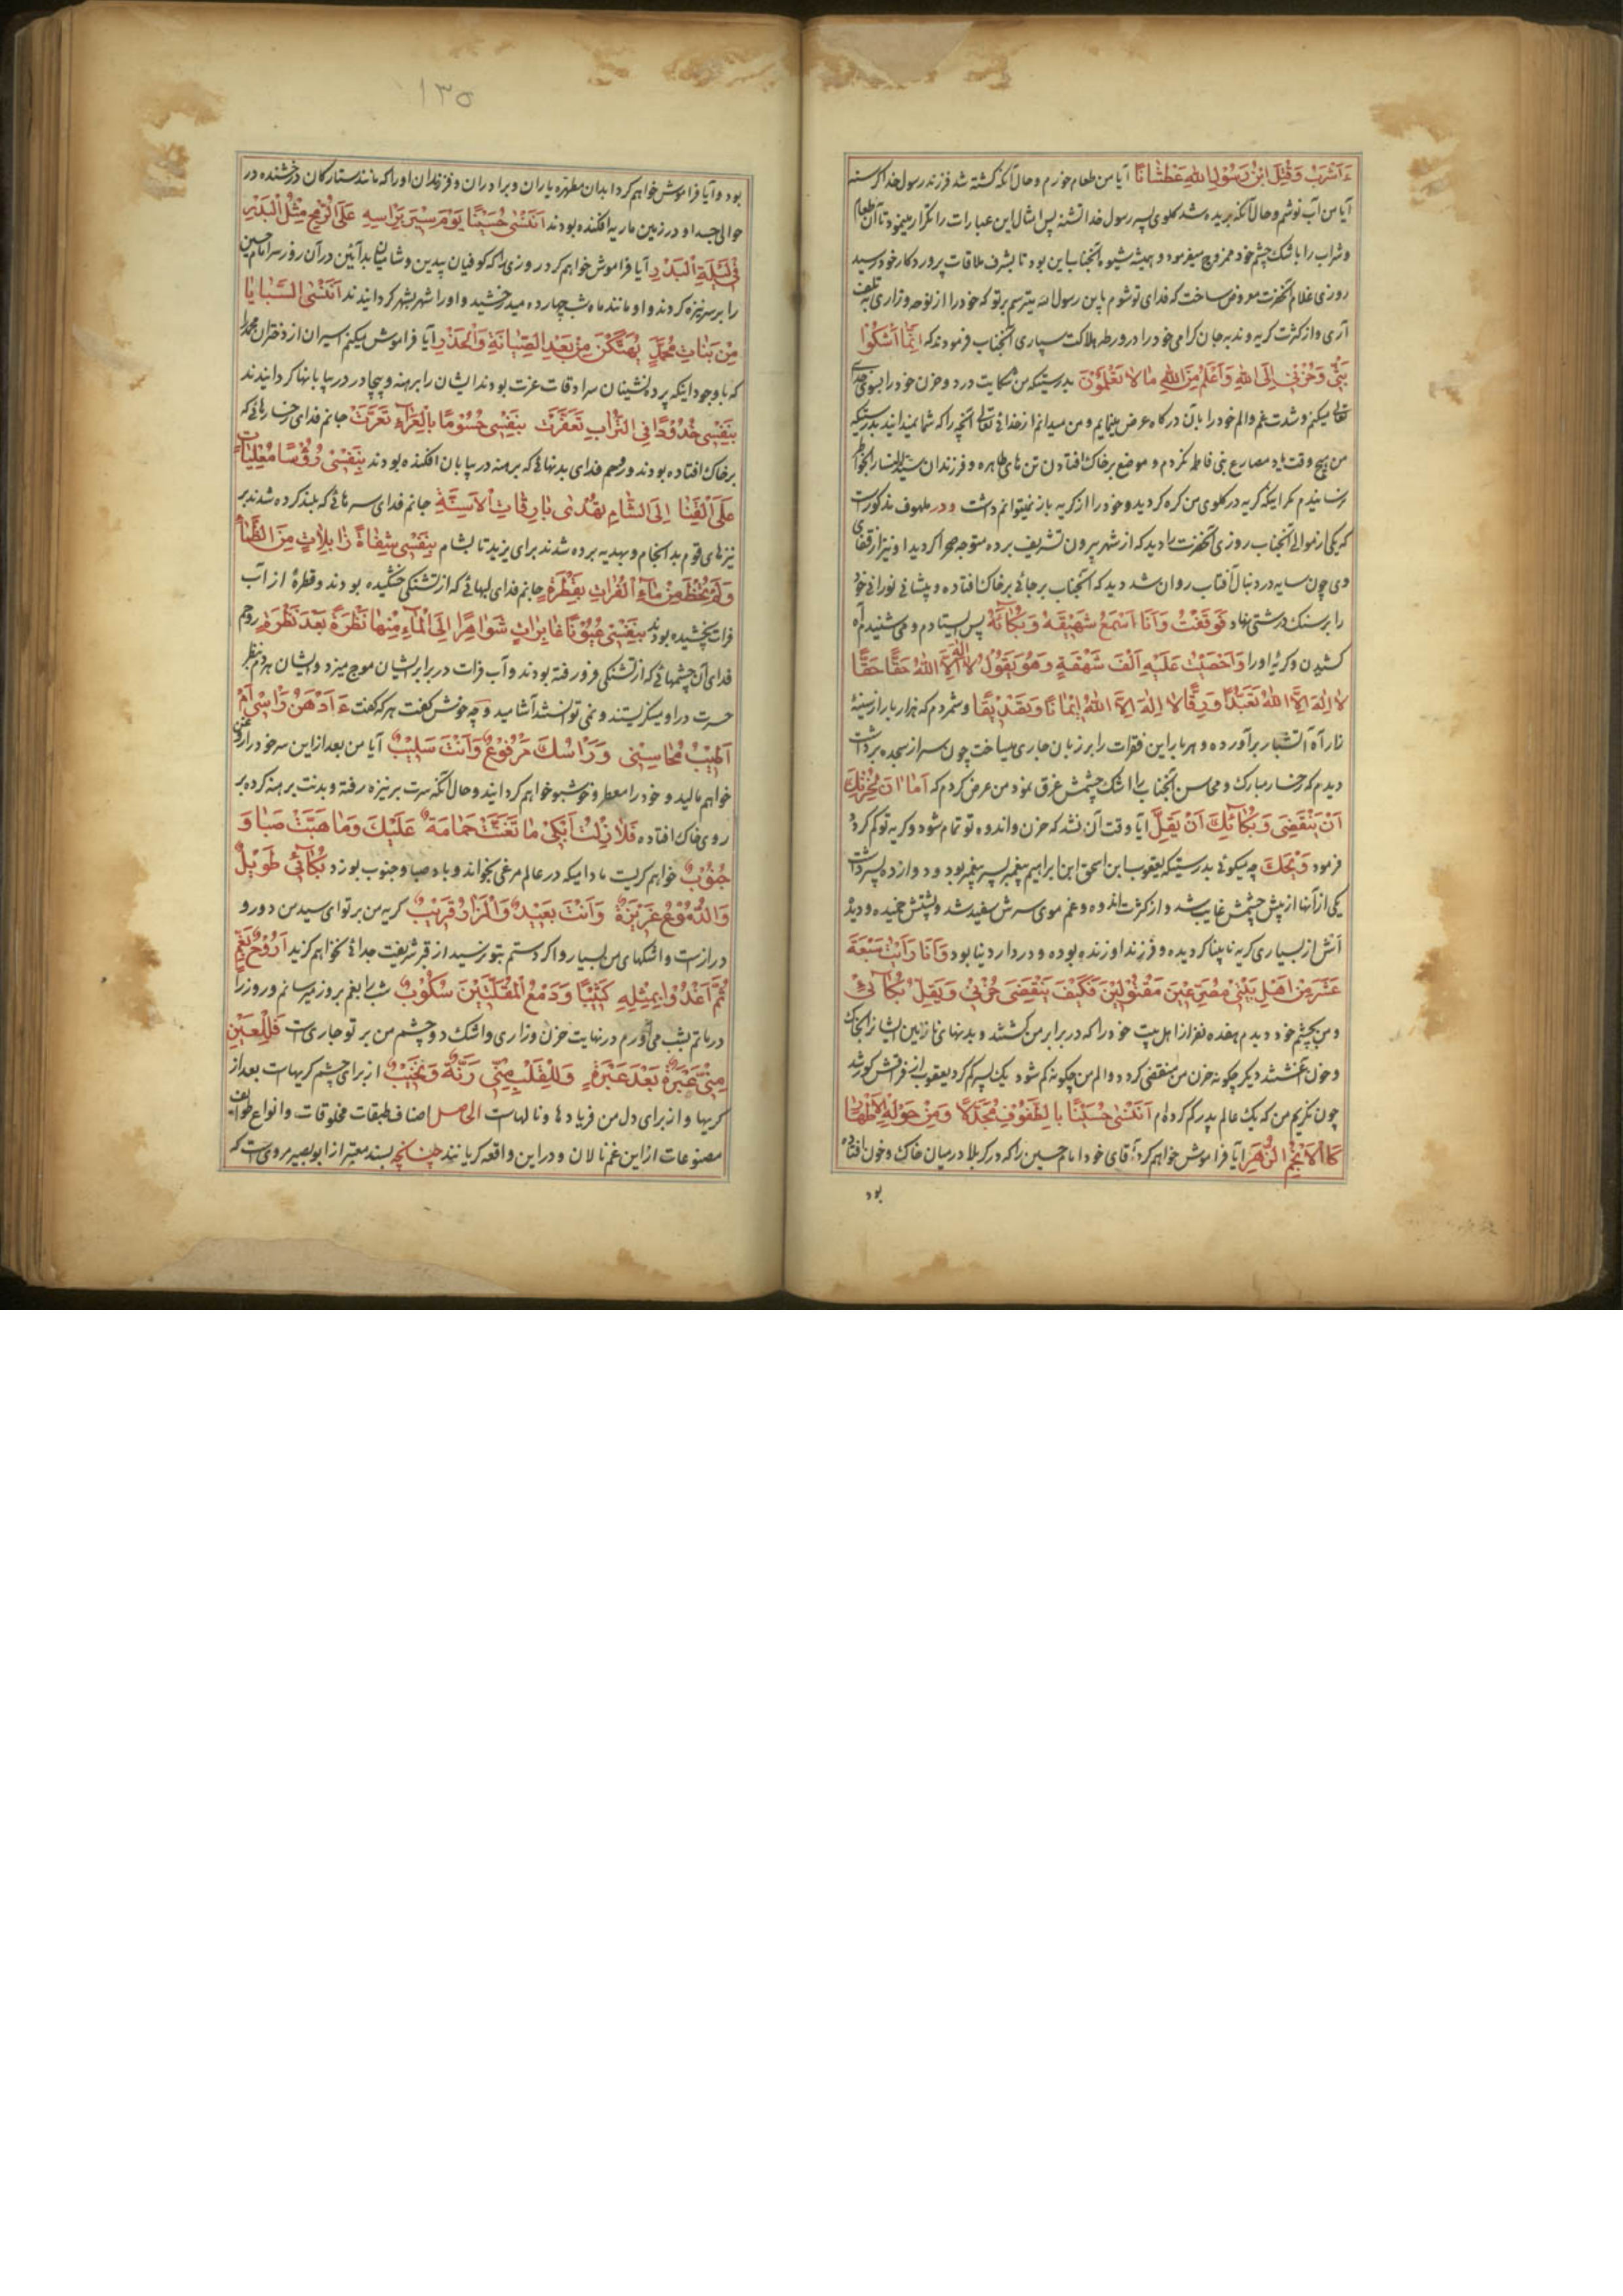 ءَاَشْرَبُ وَقُتِلَ ابْنُ رَسُوْلِ اللهِ عَطْشَانًا آیا من طعام خورم و حال آنکه کشته شد فرزند رسول خدا کرسنه
آیا من آب نوشم و حال آنکه بریده شد کلوی پسر رسول خدا تشنه پس امثال این عبارات را تکرار مینمود تا آن طعام
و شراب را باشک چشم خود ممزوج میفرمود و همیشه شیوه آنجناب این بود تا بشرف ملاقات پروردکار خود رسید
روزی غلام آنحضرت معروض ساخت که فدای تو شوم یابن رسول الله میترسم بر تو که خود را از نوحه و زاری تلف
آری و از کثرت کریه و ندبه جان کرامی خود را در ورطه هلاکت سپاری آنجناب فرمودند که اِنَّمَا اَشْكُوْا
بَثِّيْ وَحُزْنِيْ اِلَى اللهِ وَاَعْلَمُ مِنَ اللهِ مَا لَا تَعْلَمُوْنَ بدرستیکه من شکایت درد و حزن خود را بسوی خدای
تعالی میکنم و شدت غم و الم خود را بآن درکاه عرض مینمایم و من میدانم از خدای تعالی آنچه را که شما نمیدانید بدرستیکه
من هیچ وقت یاد مصارع بنی فاطمه نکردم و موضع بر خاک افتادن تن های طاهره و فرزندان سیدالنسا را بخاطر
نرسانیدم مکر اینکه کریه در کلوی من کره کردید و خود را از کریه باز نمیتوانم داشت و در ملهوف مذکور است
که یکی از موالی آنجناب روزی آنحضرت را دید که از شهر بیرون تشریف برده متوجه صحرا کردید او نیز از قفای
وی چون سایه در دنبال آفتاب روان شد دید که آنجناب بر جائی بر خاک افتاده و پیشانی نورانی خود
را بر سنک درشتی نهاد فَوَقَفْتُ وَاَنَا اَسْمَعُ شَهِيْقَهُ وَبُكَائَهُ پس ایستادم و می شنیدم آه
کشیدن و کریهٔ او را وَاَحْصَيْتُ عَلَيْهِ اَلْفَ شَهْقَةٍ وَهُوَ يَقُوْلُ لَا اِلٰهَ اِلَّا اللهُ حَقًّا حَقًّا
لَا اِلٰهَ اِلَّا اللهُ تَعَبُّدًا وَرِقًّا لَا اِلٰهَ اِلَّا اللهُ اِيْمَانًا وَتَصْدِيْقًا و شمردم که هزار بار از سینهٔ
زار آه آتشبار برآورده و هر بار این فقرات را بر زبان جاری میساخت چون سر از سجده برداشت
دیدم که رخسار مبارک و محاسن آنجناب را اشک چشمش غرق نمود من عرض کردم که اَمَا اٰنَ لِحُزْنِكَ
اَنْ يَنْقَضِيَ وَبُكَائِكَ اَنْ يَقِلَّ آیا وقت آن نشد که حزن و اندوه تو تمام شود و کریه تو کم کردد
فرمود وَيْحَكَ چه میکوئی بدرستیکه یعقوب ابن اسحق ابن ابراهیم پیغمبر پسر پیغمبر بود و دوازده پسر داشت
یکی از آنها از پیش چشمش غایب شد و از کثرت اندوه و غم موی سرش سفید شد و پشتش خمیده و دید
اش از بسیاری کریه نابینا کردیده و فرزند او زنده بوده و در دار دنیا بود وَاَنَا رَاَيْتُ سَبْعَةَ
عَشَرَ مِنْ اَهْلِ بَيْتِيْ مُصَرَّعِيْنَ مَقْتُوْلِيْنَ فَكَيْفَ يَنْقَضِيْ حُزْنِيْ وَيَقِلُّ بُكَآئِيْ
و من بچشم خود دیدم هفده نفر از اهل بیت خود را که در برابر من کشتند و بدنهای نازنین ایشان را بخاک
و خون آغشتند دیکر چکونه حزن من منقضی کردد و الم من چکونه کم شود یک پسر کم کرد یعقوب از فراقش کور شد
چون نکریم من که یک عالم پدر کم کرده ام اَتَنْسٰى حُسَيْنًا بِالطُّفُوْفِ مُجَدَّلًا وَمِنْ حَوْلِهِ الْاَطْهَارُ
كَالْاَنْجُمِ الزُّهَرِ آیا فراموش خواهم کرد آقای خود امام حسین را که در کربلا در میان خاک و خون افتاده
بود
۱۳۵
بود و آیا فراموش خواهم کرد ابدان مطهره یاران و برادران و فرزندان او را که مانند ستارکان درخشنده در
حوالی جسد او در زمین ماریه افکنده بودند اَتَنْسٰى حُسَيْنًا يَوْمَ سِيْرَ بِرَاسِهِ عَلَى الرُّمْحِ مِثْلَ الْبَدْرِ
فِيْ لَيْلَةِ الْبَدْرِ آیا فراموش خواهم کرد روزی را که کوفیان بیدین و شامیان بدآئین در آن روز سر امام حسین
را بر سر نیزه کردند و او مانند ماه شب چهارده میدرخشید و او را شهر بشهر کردانیدند اَتَنْسَى السَّبَايَا
مِنْ بَنَاتِ مُحَمَّدٍ يُهَتَّكْنَ مِنْ بَعْدِ الصِّيَانَةِ وَالْخِدْرِ آیا فراموش میکنم اسیران از دختران محمد را
که با وجود اینکه پرده نشینان سرادقات عزت بودند ایشان را برهنه و بیچادر در بیابانها کردانیدند
بِنَفْسِيْ خُدُوْدًا فِي التُّرَابِ تَعَفَّرَتْ بِنَفْسِيْ جُسُوْمًا بِالْعَرَآءِ تَعَرَّتْ جانم فدای رخسارهائی که
بر خاک افتاده بودند و روحم فدای بدنهائی که برهنه در بیابان افکنده بودند بِنَفْسِيْ رُؤُسًا مُعْلِيَاتٍ
عَلَى الْقَنَا اِلَى الشَّامِ تُهْدٰى بَارِقَاتِ الْاَسِنَّةِ جانم فدای سرهائی که بلند کرده شدند بر
نیزهای قوم بد انجام و بهدیه برده شدند برای یزید تا بشام بِنَفْسِيْ شِفَاهًا ذَابِلَاتٍ مِنَ الظَّمَأِ
وَلَمْ تُحْظَ مِنْ مَآءِ الْفُرَاتِ بِقَطْرَةٍ جانم فدای لبهائی که از تشنکی خشکیده بودند و قطرهٔ از آب
فرات نچشیده بودند بِنَفْسِيْ عُيُوْنًا غَايِرَاتٍ شَوَاهِرًا اِلَى الْمَآءِ مِنْهَا نَظْرَةٌ بَعْدَ نَظْرَةٍ روحم
فدای آن چشمهائی که از تشنکی فرو رفته بودند و آب فرات در برابر ایشان موج میزد و ایشان هر دم بنظر
حسرت در او میکریستند و نمی توانستند آشامید و چه خوش کفت هر که کفت ءَاَدْهَنُ رَاسِيْ اَمْ
اَطِيْبُ مَحَاسِنِيْ وَرَاسُكَ مَرْفُوْعٌ وَاَنْتَ سَلِيْبٌ آیا من بعد از این سر خود را روغن
خواهم مالید و خود را معطر و خوشبو خواهم کردانید و حال آنکه سرت بر نیزه رفته و بدنت برهنه کرده بر
روی خاک افتاده فَلَا زِلْتُ اَبْكِيْ مَا تَغَنَّتْ حَمَامَةٌ عَلَيْكَ وَمَا هَبَّتْ صَبَا وَ
جَنُوْبٌ خواهم کریست مادامیکه در عالم مرغی بخواند و باد صبا و جنوب بوزد بُكَآئِيْ طَوِيْلٌ
وَالدُّمُوْعُ غَزِيْرَةٌ وَاَنْتَ بَعِيْدٌ وَالْمَزَارُ قَرِيْبٌ کریه من بر تو ای سید من دور و
دراز است و اشکهای من بسیار و اکر دستم بتو نرسید از قبر شریفت جدائی نخواهم کزید اَرُوْحُ بِغَمٍّ
ثُمَّ اَغْدُوْا بِمِثْلِهِ كَئِيْبًا وَدَمْعُ الْمُقْلَتَيْنِ سَكُوْبٌ شب را بغم بروز میرسانم و روز را
در ماتم بشب می آورم در نهایت حزن و زاری و اشک دو چشم من بر تو جاری است فَلِلْعَيْنِ
مِنِّيْ عَبْرَةٌ بَعْدَ عَبْرَةٍ وَلِلْقَلْبِ مِنِّيْ رَنَّةٌ وَنَحِيْبٌ از برای چشم کریهاست بعد از
کریها و از برای دل من فریادها و نالهاست الحاصل اصناف طبقات مخلوقات و انواع طوایف
مصنوعات از این غم نالان و در این واقعه کریانند چنانچه بسند معتبر از ابو بصیر مرویست که